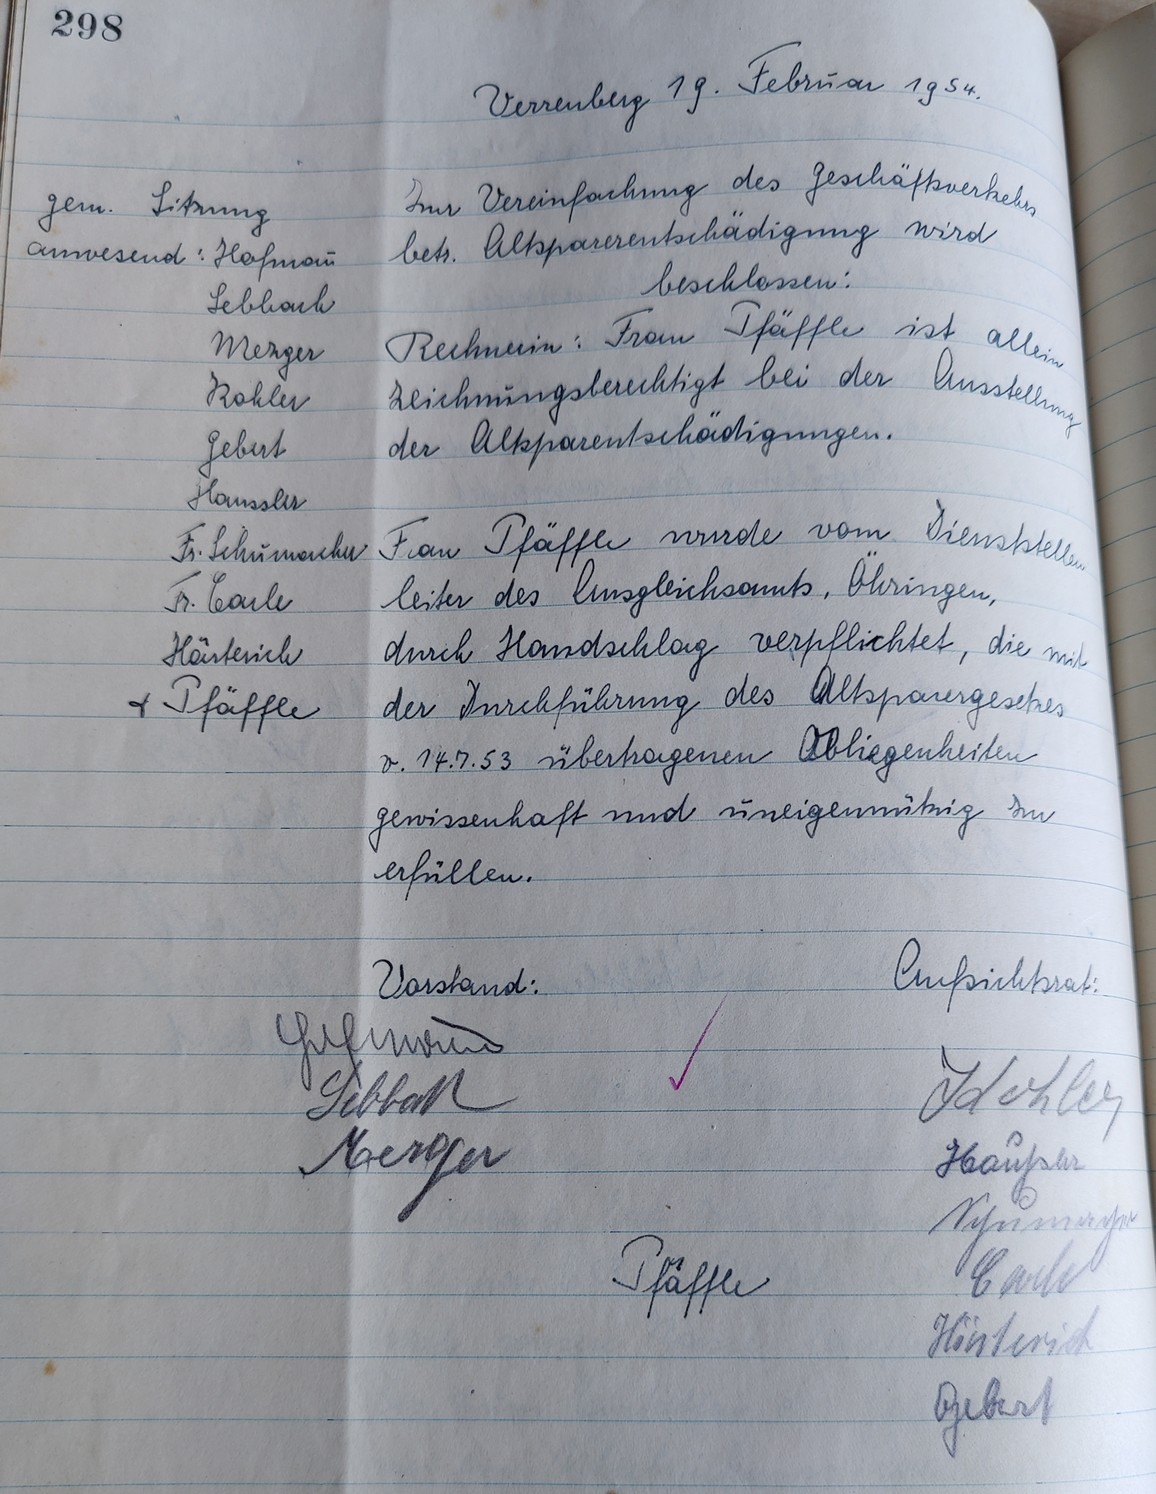 298
Verrenberg 19. Februar 1954.
gem. Sitzung
anwesend: Hofmann
Sebbach
Mezger
Kohler
Gebert
Haussler
Fr. Schumacher
Fr. Carle
Härterich
+ Pfäffle
Zur Vereinfachung des Geschäftsverkehrs
betr. Altsparerentschädigung wird
beschlossen:
Rechnerin: Frau Pfäffle ist allein
zeichnungsberechtigt bei der Ausstellung
der Altsparentschädigungen.
Frau Pfäffle wurde vom Dienststellen
leiter des Ausgleichsamts, Öhringen,
durch Handschlag verpflichtet, die mit
der Durchführung des Altsparergesetzes
v. 14.7.53 übertragenen Obliegenheiten
gewissenhaft und uneigennützig zu
erfüllen.
Vorstand:
Hofmann
Sebbach
Mezger
Aufsichtsrat:
Kohler
Häußler
Schumacher
Carle
Härterich
Gebert
Pfäffle